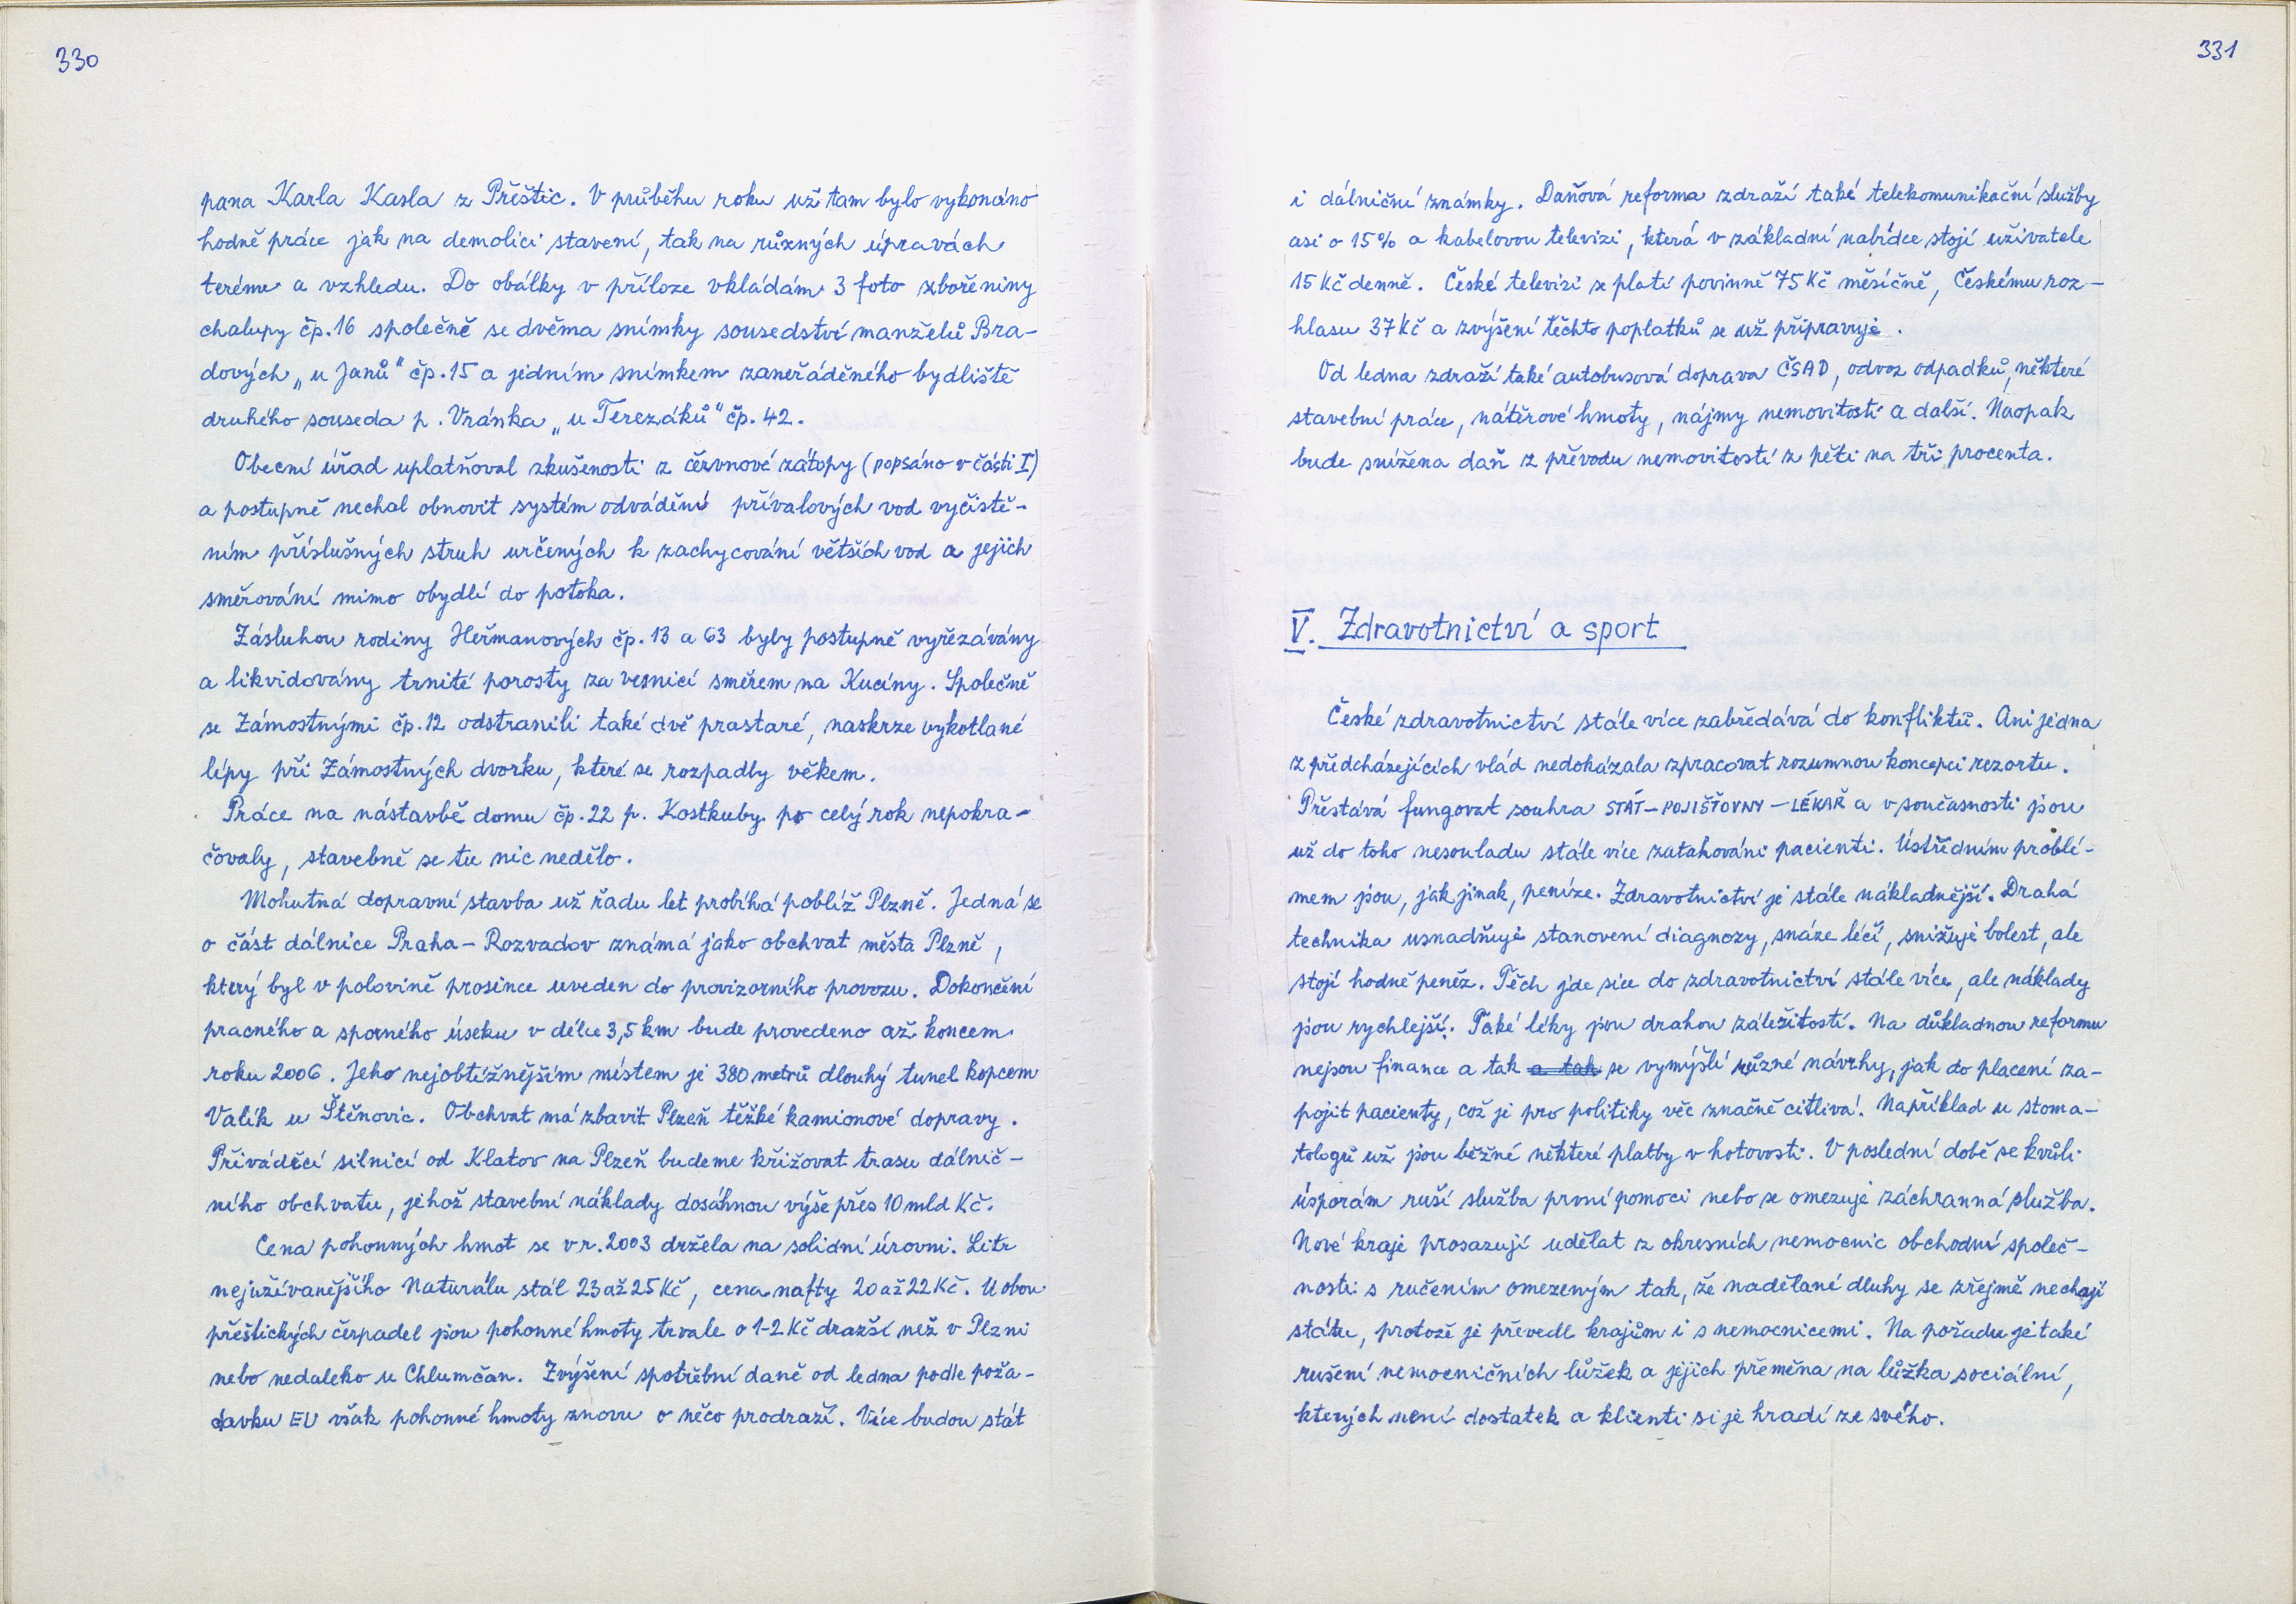 330
pana Karla Kasla z Přeštic. V průběhu roku už tam bylo vykonáno
hodně práce jak na demolici stavení, tak na různých úpravách
terénu a vzhledu. Do obálky v příloze vkládám 3 foto zbořeniny
chalupy čp. 16 společně se dvěma snímky sousedství manželů Bra-
dových „u Janů" čp. 15 a jedním snímkem zaneřáděného bydliště
druhého souseda p. Vránka „u Terezáků" čp. 42.
Obecní úřad uplatňoval zkušenosti z červnové zátopy (popsáno v části I)
a postupně nechal obnovit systém odvádění přívalových vod vyčistě-
ním příslušných struh určených k zachycování větších vod a jejich
směrování mimo obydlí do potoka.
Zásluhou rodiny Heřmanových čp. 13 a 63 byly postupně vyřezávány
a likvidovány trnité porosty za vesnicí směrem na Kuciny. Společně
se Zámostnými čp. 12 odstranili také dvě prastaré, naskrze vykotlané
lípy při Zámostných dvorku, které se rozpadly věkem.
Práce na nástavbě domu čp. 22 p. Kostkuby po celý rok nepokra-
čovaly, stavebně se tu nic nedělo.
Mohutná dopravní stavba už řadu let probíhá poblíž Plzně. Jedná se
o část dálnice Praha - Rozvadov známá jako obchvat města Plzně,
který byl v polovině prosince uveden do provizorního provozu. Dokončení
pracného a sporného úseku v délce 3,5 km bude provedeno až koncem
roku 2006. Jeho nejobtížnějším místem je 380 metrů dlouhý tunel kopcem
Valík u Štěnovic. Obchvat má zbavit Plzeň těžké kamionové dopravy.
Přiváděcí silnicí od Klatov na Plzeň budeme křižovat trasu dálnič-
ního obchvatu, jehož stavební náklady dosáhnou výše přes 10 mld Kč.
Cena pohonných hmot se v r. 2003 držela na solidní úrovni. Litr
nejužívanějšího Naturálu stál 23 až 25 Kč, cena nafty 20 až 22 Kč. U obou
přeštických čerpadel jsou pohonné hmoty trvale o 1-2 Kč dražší než v Plzni
nebo nedaleko u Chlumčan. Zvýšení spotřební daně od ledna podle poža-
davku EU však pohonné hmoty znovu o něco prodraží. Více budou stát
331
i dálniční známky. Daňová reforma zdraží také telekomunikační služby
asi o 15% a kabelovou televizi, která v základní nabídce stojí uživatele
15 Kč denně. České televizi se platí povinně 75 Kč měsíčně, Českému roz-
hlasu 37 Kč a zvýšení těchto poplatků se už připravuje.
Od ledna zdraží také autobusová doprava ČSAD, odvoz odpadků, některé
stavební práce, nátěrové hmoty, nájmy nemovitostí a další. Naopak
bude snížena daň z převodu nemovitostí z pěti na tři procenta.
V. Zdravotnictví a sport
České zdravotnictví stále více zabředává do konfliktů. Ani jedna
z předcházejících vlád nedokázala zpracovat rozumnou koncepci rezortu.
Přestává fungovat souhra STÁT - POJIŠŤOVNY - LÉKAŘ a v současnosti jsou
už do toho nesouladu stále více zatahováni pacienti. Ústředním problé-
mem jsou, jak jinak, peníze. Zdravotnictví je stále nákladnější. Drahá
technika usnadňuje stanovení diagnozy, snáze léčí, snižuje bolest, ale
stojí hodně peněz. Těch jde sice do zdravotnictví stále více, ale náklady
jsou rychlejší. Také léky jsou drahou záležitostí. Na důkladnou reformu
nejsou finance a tak a tak se vymýšlí různé návrhy, jak do placení za-
pojit pacienty, což je pro politiky věc značně citlivá. Například u stoma-
tologů už jsou běžné některé platby v hotovosti. V poslední době se kvůli
úsporám ruší služba první pomoci nebo se omezuje záchranná služba.
Nové kraje prosazují udělat z okresních nemocnic obchodní společ-
nosti s ručením omezeným tak, že nadělané dluhy se zřejmě nechají
státu, protože je převedl krajům i s nemocnicemi. Na pořadu je také
rušení nemocničních lůžek a jejich přeměna na lůžka sociální,
kterých není dostatek a klienti si je hradí ze svého.